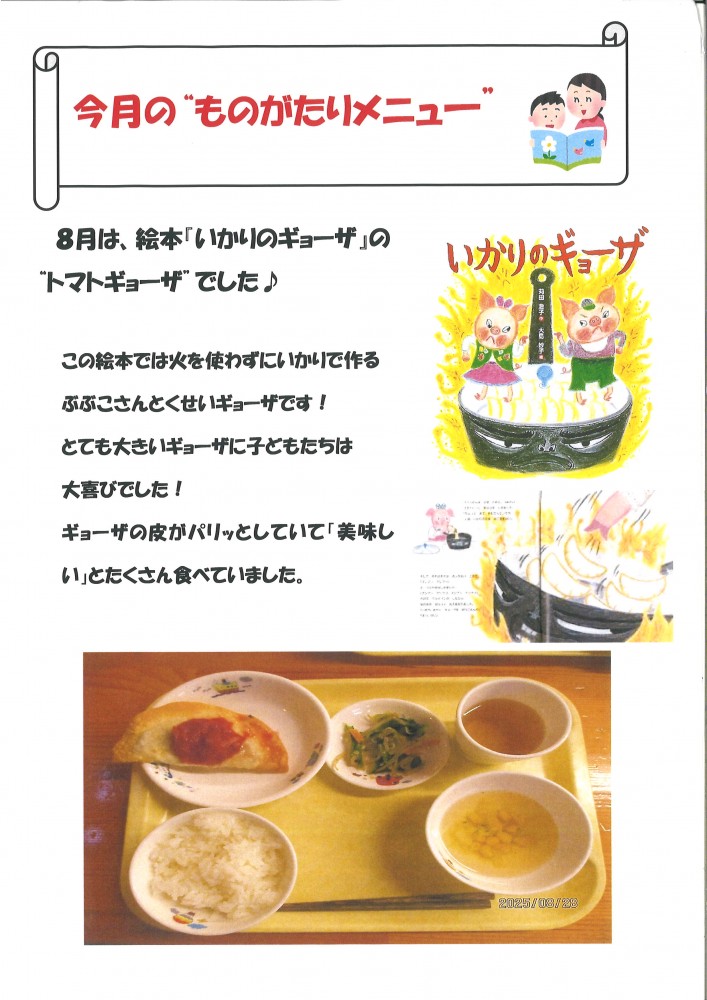 今月の“ものがたりメニュー”
８月は、絵本『いかりのギョーザ』の
“トマトギョーザ”でした♪
いかりのギョーザ
苅田 澄子 作 大島 妙子 絵
この絵本では火を使わずにいかりで作る
ぶぶこさんとくせいギョーザです！
とても大きいギョーザに子どもたちは
大喜びでした！
ギョーザの皮がパリッとしていて「美味し
い」とたくさん食べていました。
2025/08/28